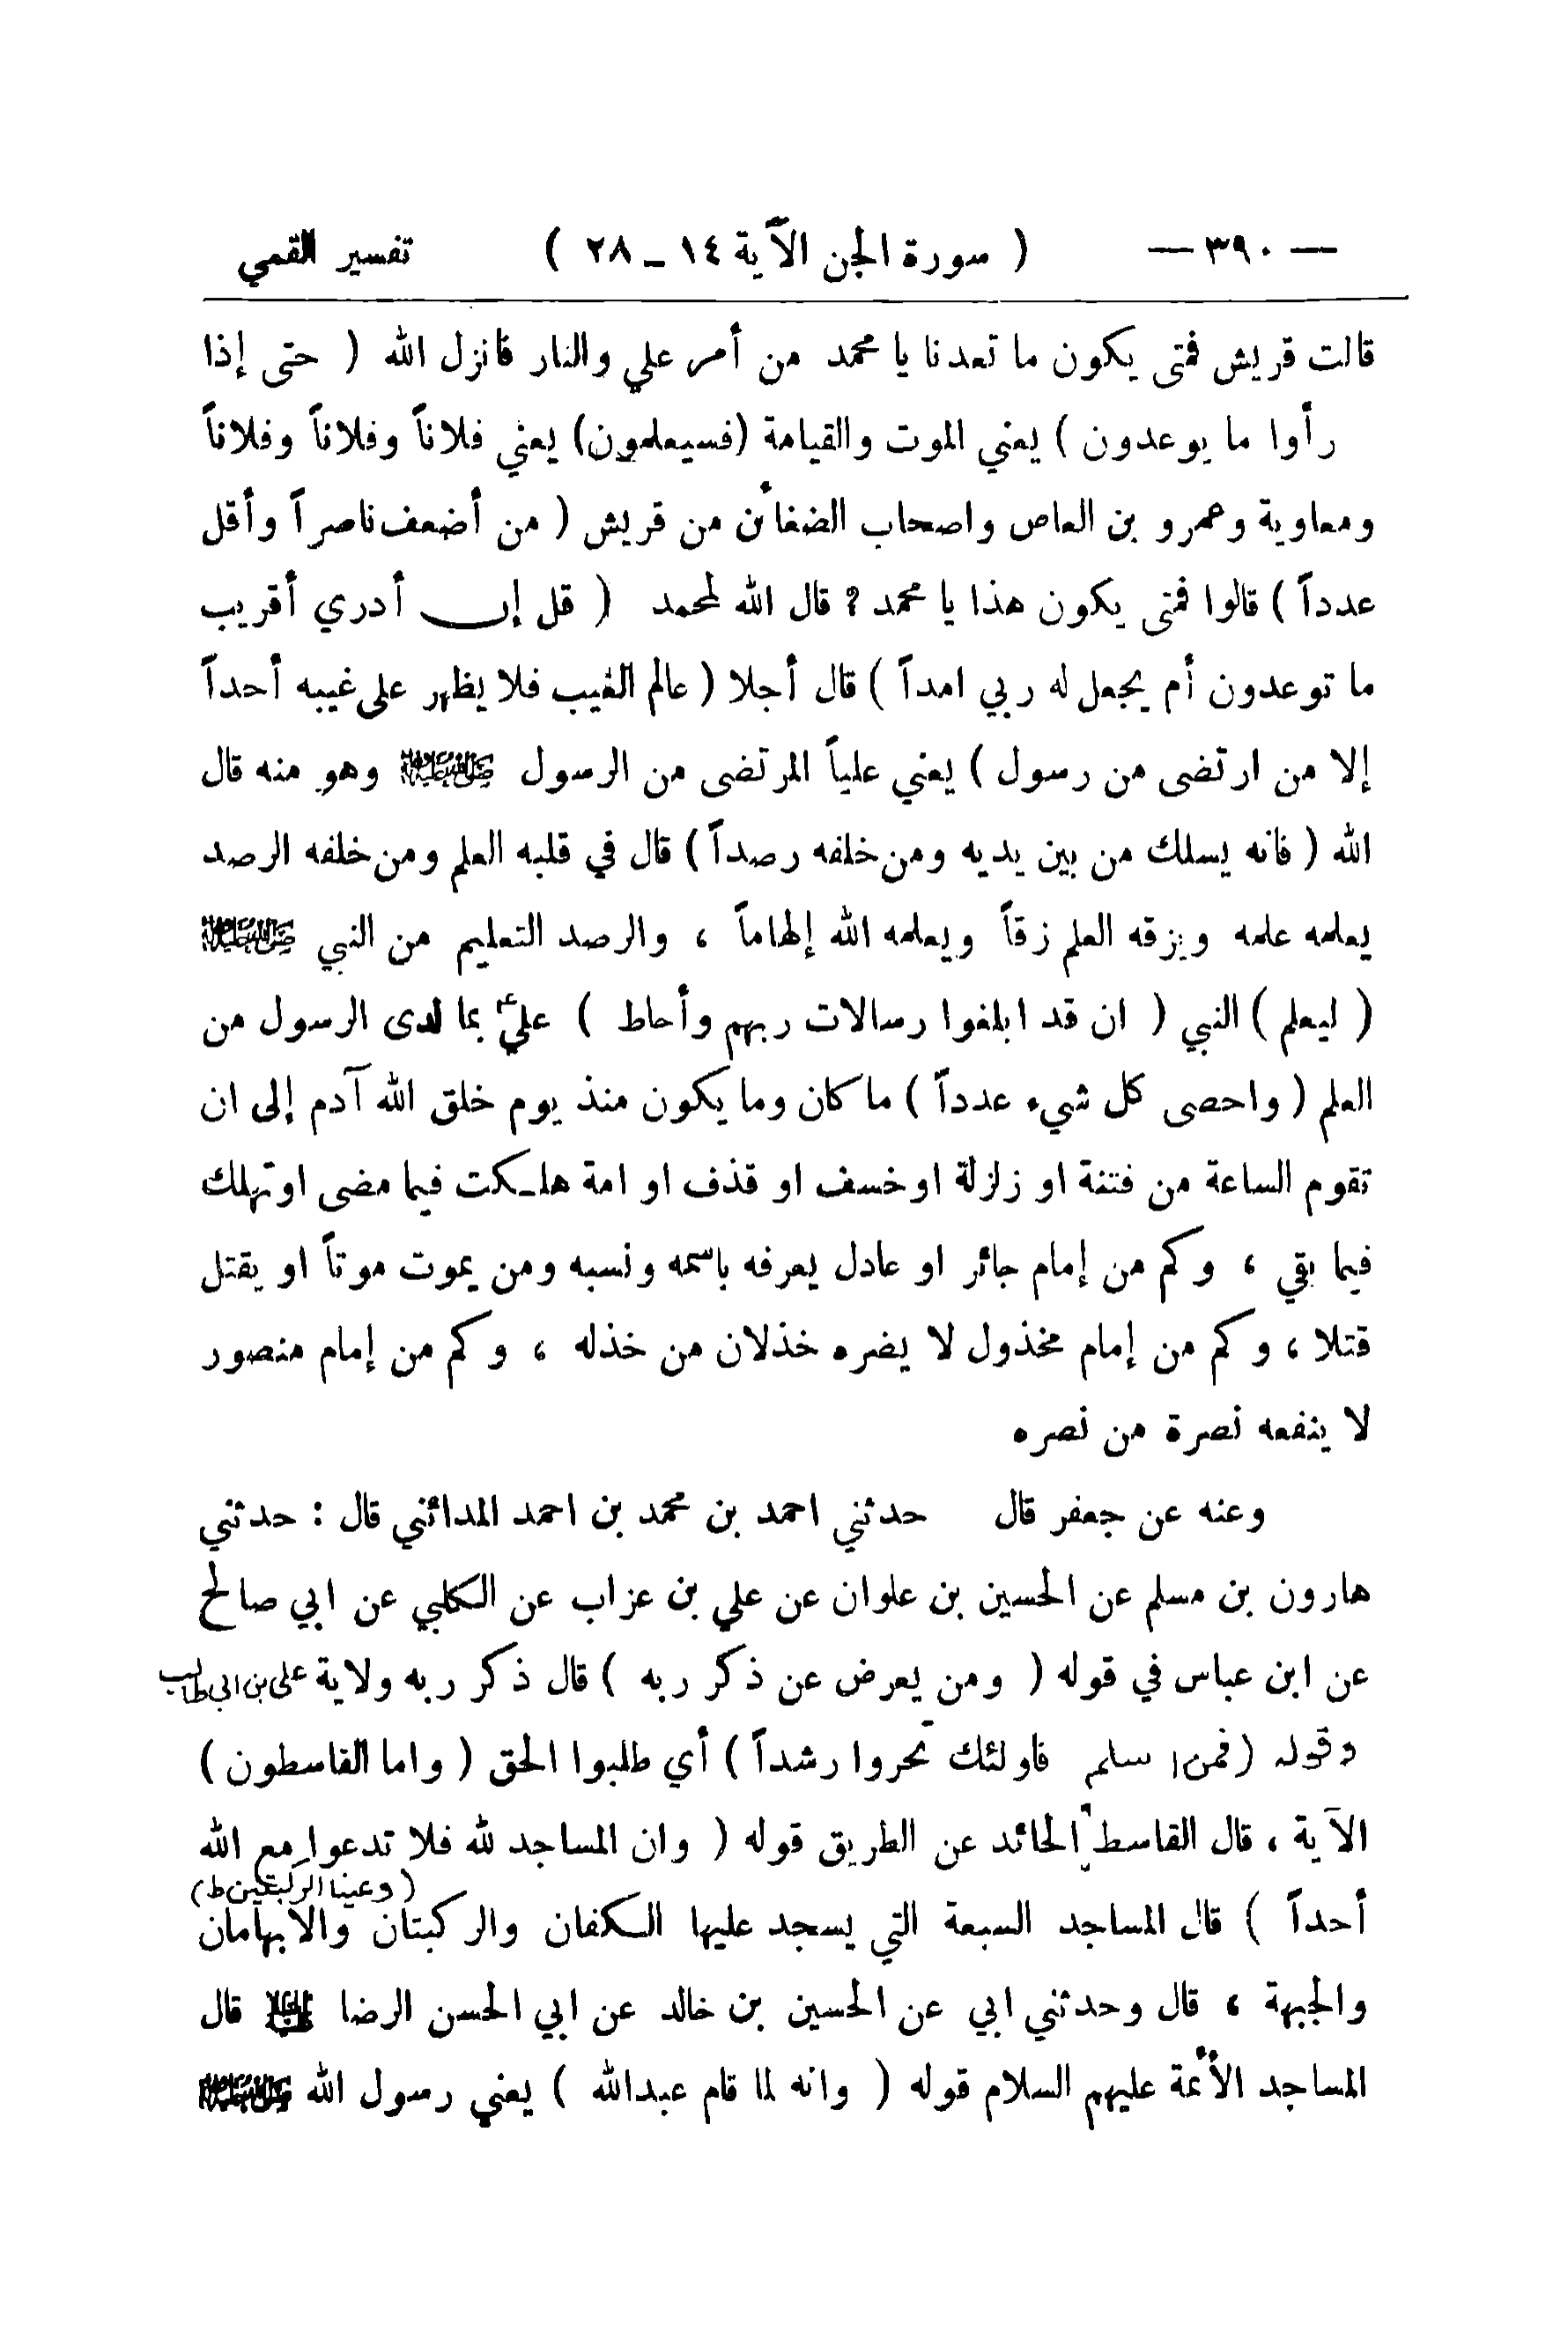 — ٣٩٠ — ( سورة الجن الآية ١٤ ــ ٢٨ ) تفسير القمي
قالت قريش فمتى يكون ما تعدنا يا محمد من أمر علي والنار فانزل الله ( حتى إذا
رأوا ما يوعدون ) يعني الموت والقيامة (فسيعلمون) يعني فلاناً وفلاناً وفلاناً
ومعاوية وعمرو بن العاص واصحاب الضغائن من قريش ( من أضعف ناصراً وأقل
عدداً ) قالوا فمتى يكون هذا يا محمد ? قال الله لمحمد ( قل إن أدري أقريب
ما توعدون أم يجعل له ربي امداً ) قال أجلا ( عالم الغيب فلا يظهر على غيبه أحداً
إلا من ارتضى من رسول ) يعني علياً المرتضى من الرسول ﷺ وهو منه قال
الله ( فانه يسلك من بين يديه ومن خلفه رصداً ) قال في قلبه العلم ومن خلفه الرصد
يعلمه علمه ويزقه العلم زقاً ويعلمه الله إلهاماً ، والرصد التعليم من النبي ﷺ
( ليعلم ) النبي ( ان قد ابلغوا رسالات ربهم وأحاط ) عليٌ ع بما لدى الرسول من
العلم ( واحصى كل شيء عدداً ) ما كان وما يكون منذ يوم خلق الله آدم إلى ان
تقوم الساعة من فتنة او زلزلة او خسف او قذف او امة هلـكت فيما مضى او تهلك
فيما بقي ، وكم من إمام جائر او عادل يعرفه باسمه ونسبه ومن يموت موتاً او يقتل
قتلا ، وكم من إمام مخذول لا يضره خذلان من خذله ، وكم من إمام منصور
لا ينفعه نصرة من نصره
وعنه عن جعفر قال حدثني احمد بن محمد بن احمد المدائني قال : حدثني
هارون بن مسلم عن الحسين بن علوان عن علي بن عزاب عن الكلبي عن ابي صالح
عن ابن عباس في قوله ( ومن يعرض عن ذكر ربه ) قال ذكر ربه ولاية علي بن ابي طالب
وقوله (فمن اسلم فاولئك تحروا رشداً ) أي طلبوا الحق ( واما القاسطون )
الآية ، قال القاسط الحائد عن الطريق قوله ( وان المساجد لله فلا تدعوا مع الله
( وعينا الركبتين ط )
أحداً ) قال المساجد السبعة التي يسجد عليها الـكفان والركبتان والابهامان
والجبهة ، قال وحدثني ابي عن الحسين بن خالد عن ابي الحسن الرضا عليه السلام قال
المساجد الأئمة عليهم السلام قوله ( وانه لما قام عبدالله ) يعني رسول الله ﷺ